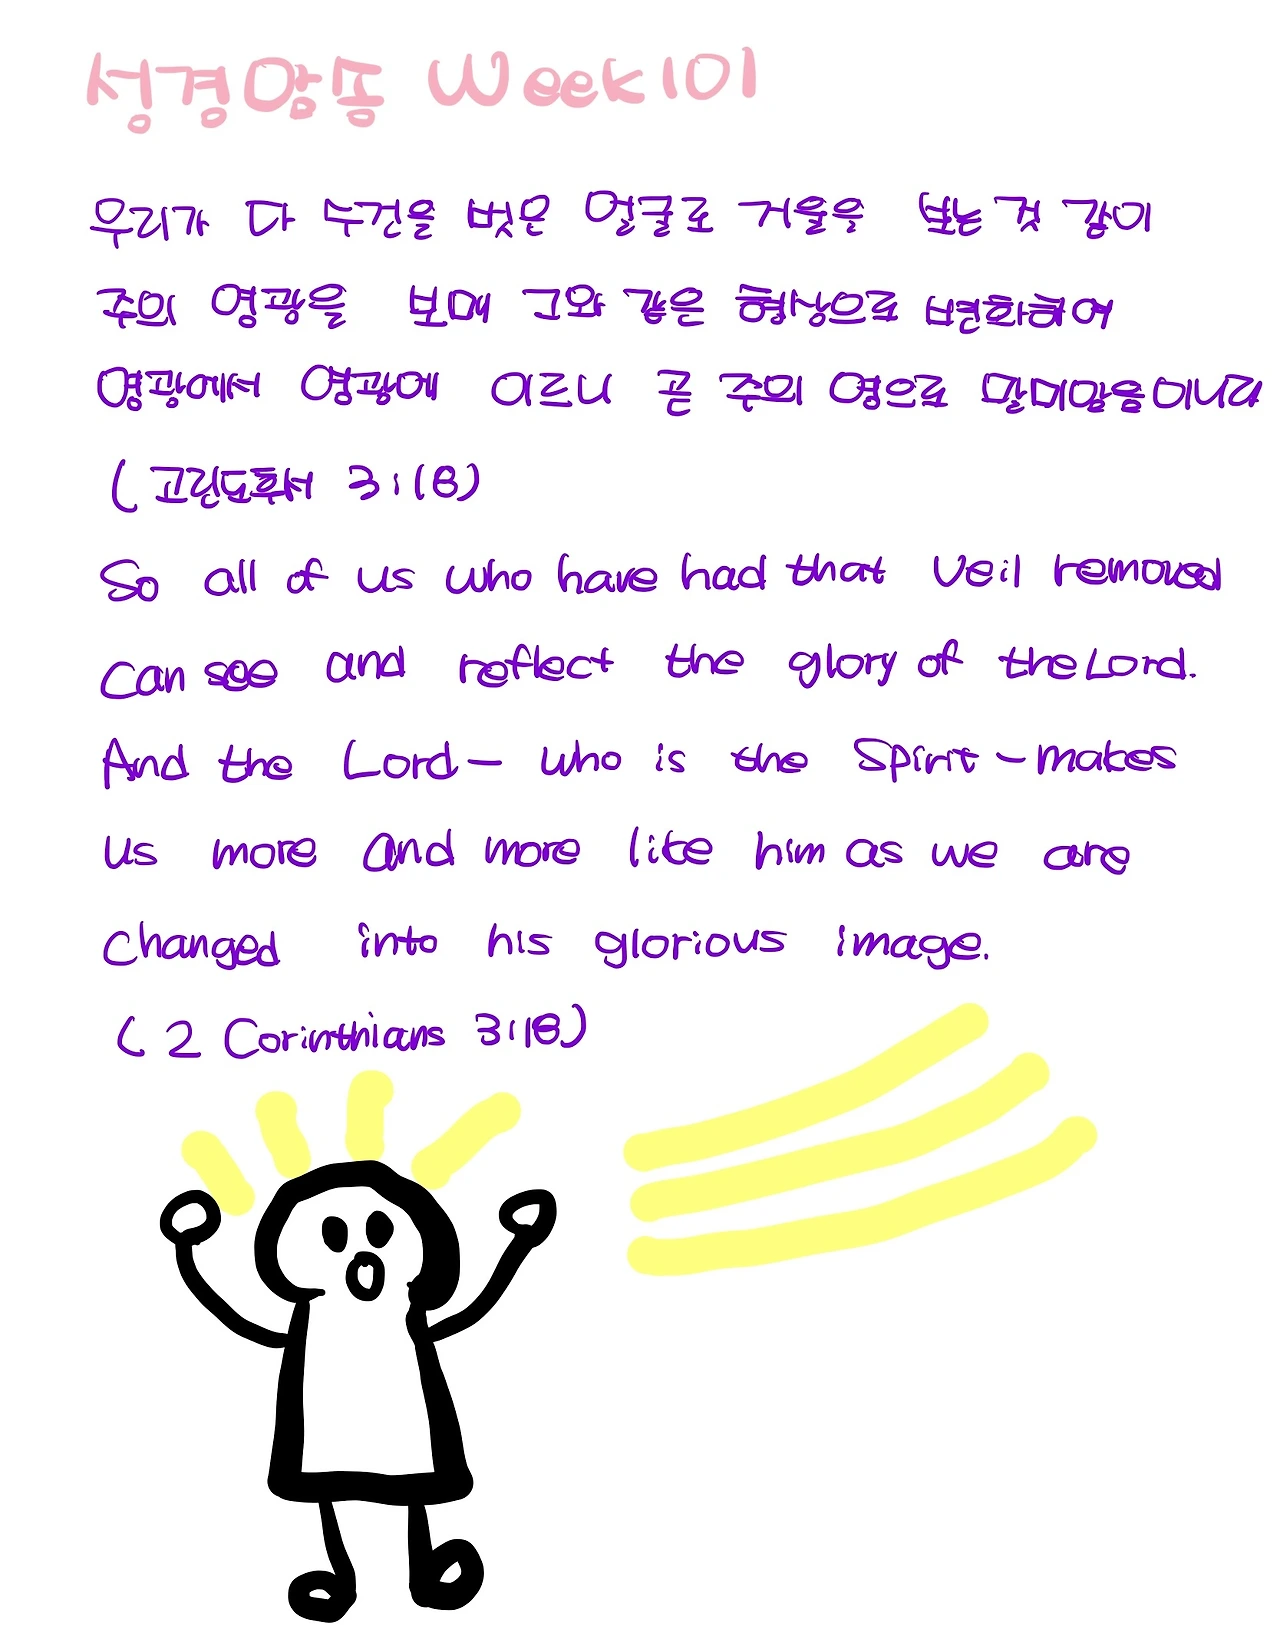 성경암송 Week101
우리가 다 수건을 벗은 얼굴로 거울을 보는 것 같이
주의 영광을 보매 그와 같은 형상으로 변화하여
영광에서 영광에 이르니 곧 주의 영으로 말미암음이니라
(고린도후서 3:18)
So all of us who have had that veil removed
can see and reflect the glory of the Lord.
And the Lord— who is the Spirit—makes
us more and more like him as we are
changed into his glorious image.
(2 Corinthians 3:18)